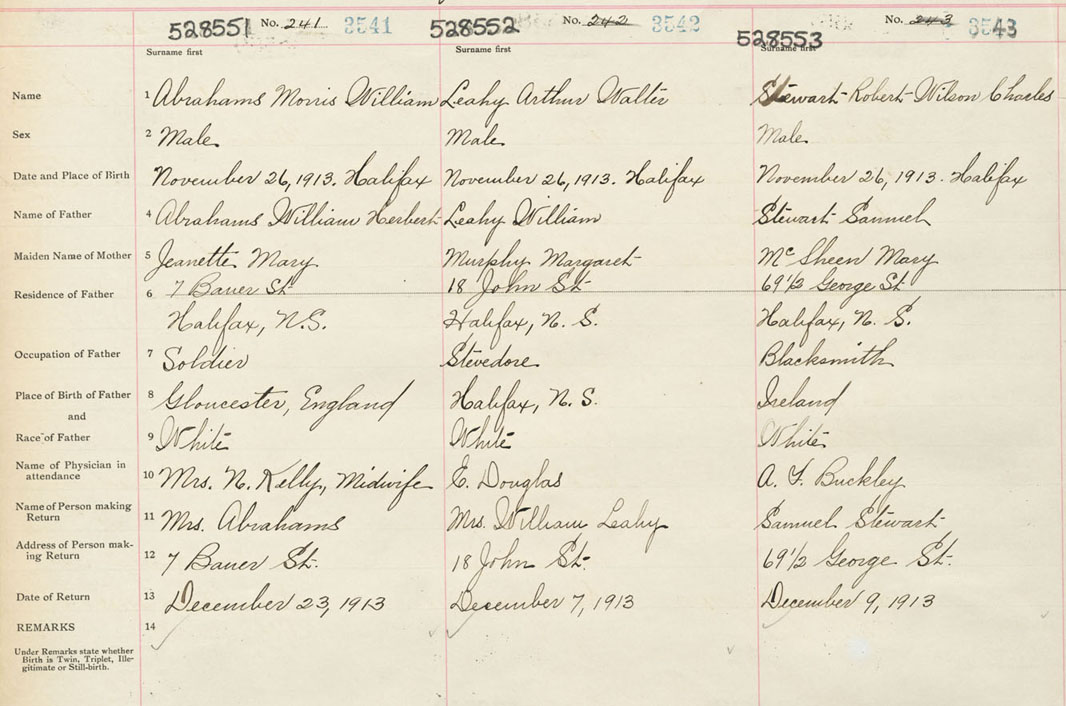 528551 No. 241 3541 528552 No. 242 3542 528553 No. 243 3543
Surname first Surname first Surname first
Name 1 Abrahams Morris William Leahy Arthur Walter Stewart Robert Wilson Charles
Sex 2 Male Male Male
Date and Place of Birth November 26, 1913. Halifax November 26, 1913. Halifax November 26, 1913. Halifax
Name of Father 4 Abrahams William Herbert Leahy William Stewart Samuel
Maiden Name of Mother 5 Jeanette Mary Murphy Margaret McSheen Mary
Residence of Father 6 7 Bauer St 18 John St 69 1/2 George St
Halifax, N.S. Halifax, N. S. Halifax, N. S.
Occupation of Father 7 Soldier Stevedore Blacksmith
Place of Birth of Father 8 Gloucester, England Halifax, N. S. Ireland
and
Race of Father 9 White White White
Name of Physician in
attendance 10 Mrs. N. Kelly, Midwife E. Douglas A. F. Buckley
Name of Person making
Return 11 Mrs. Abrahams Mrs. William Leahy Samuel Stewart
Address of Person mak-
ing Return 12 7 Bauer St. 18 John St. 69 1/2 George St.
Date of Return 13 December 23, 1913 December 7, 1913 December 9, 1913
REMARKS 14
Under Remarks state whether
Birth is Twin, Triplet, Ille-
gitimate or Still-birth.